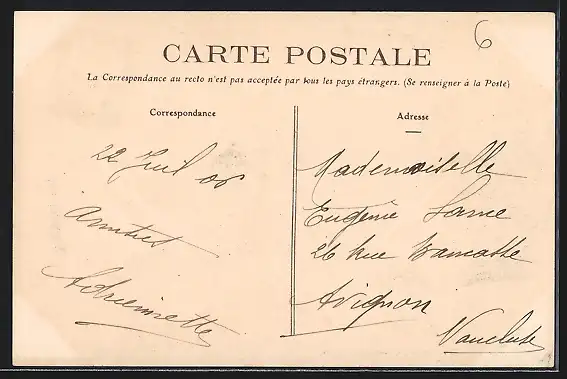 6
CARTE POSTALE
La Correspondance au recto n'est pas acceptée par tous les pays étrangers. (Se renseigner à la Poste)
Correspondance
Adresse
22 Juil 06
Amitiés
Adriennette
Mademoiselle
Eugénie
26 Rue Banasterie
Avignon
Vaucluse